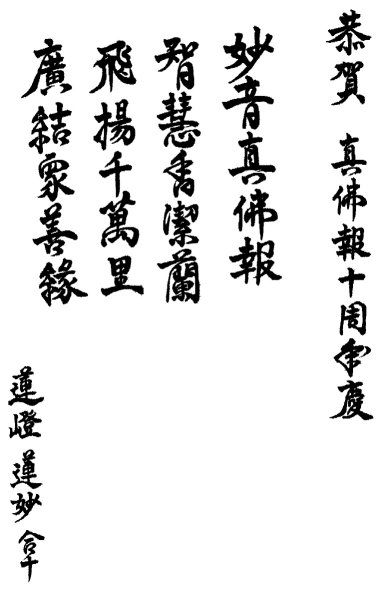 恭賀 真佛報十周年慶
妙音真佛報
智慧香潔蘭
飛揚千萬里
廣結眾善緣
蓮嶝 蓮妙 合十